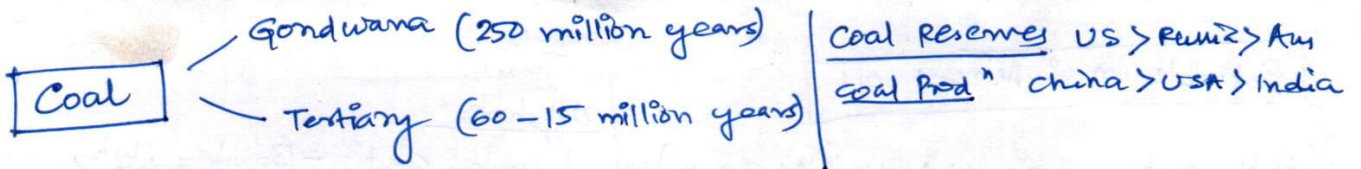 Coal
Gondwana (250 million years)
Tertiary (60-15 million years)
Coal Reserves US > Russia > Aus
Coal Prodⁿ China > USA > India